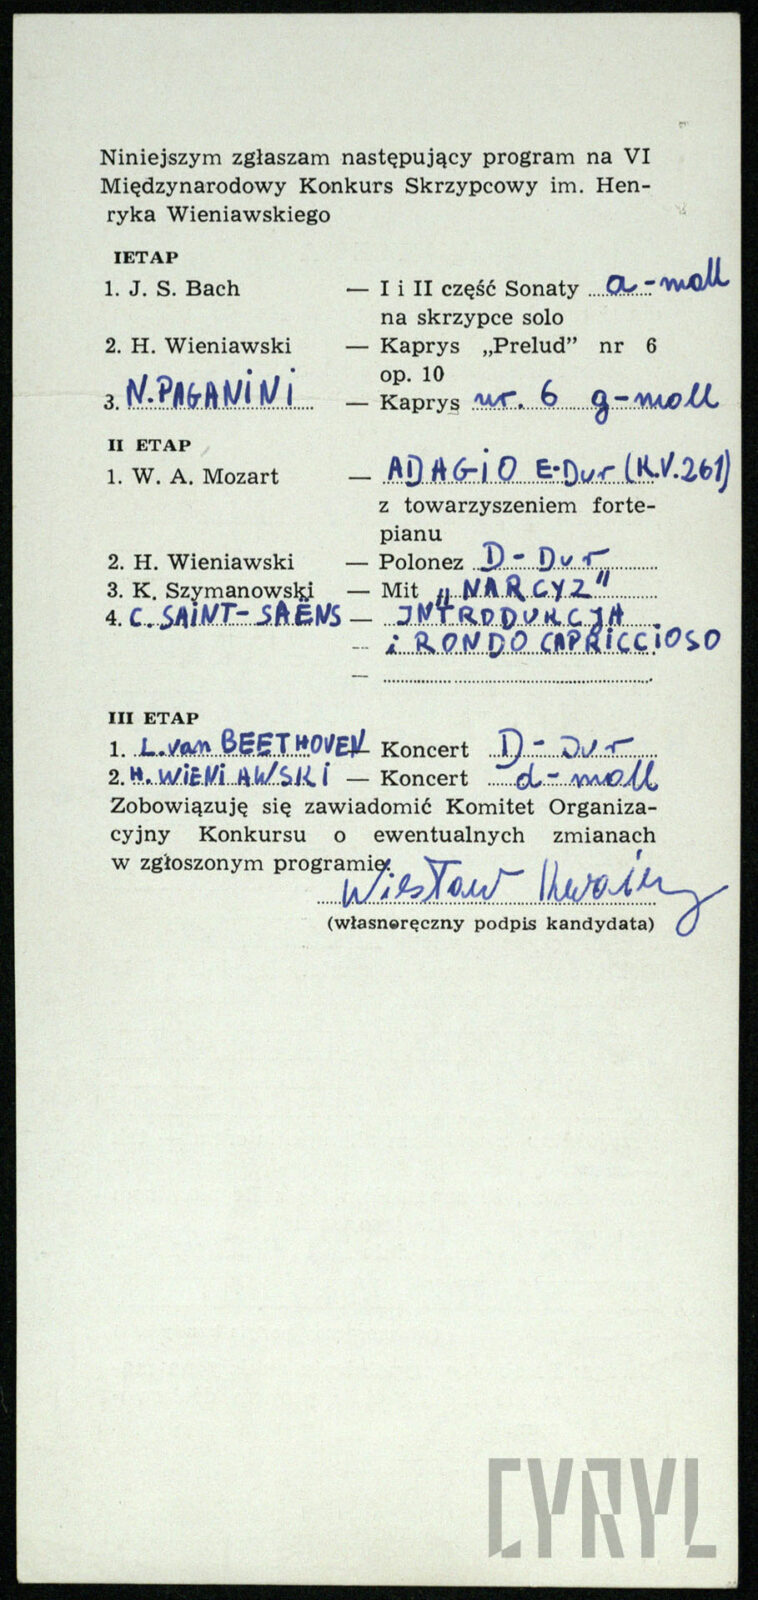 Niniejszym zgłaszam następujący program na VI
Międzynarodowy Konkurs Skrzypcowy im. Hen-
ryka Wieniawskiego
I ETAP
1. J. S. Bach — I i II część Sonaty a-moll
na skrzypce solo
2. H. Wieniawski — Kaprys „Prelud” nr 6
op. 10
3. N. PAGANINI — Kaprys nr. 6 g-moll
II ETAP
1. W. A. Mozart — ADAGIO E-Dur (K.V. 261)
z towarzyszeniem forte-
pianu
2. H. Wieniawski — Polonez D-Dur
3. K. Szymanowski — Mit „NARCYZ”
4. C. SAINT-SAËNS — INTRODUKCJA
— i RONDO CAPRICCIOSO
—
III ETAP
1. L. van BEETHOVEN — Koncert D-Dur
2. H. WIENIAWSKI — Koncert d-moll
Zobowiązuję się zawiadomić Komitet Organiza-
cyjny Konkursu o ewentualnych zmianach
w zgłoszonym programie.
Wiesław
(własnoręczny podpis kandydata)
CYRYL